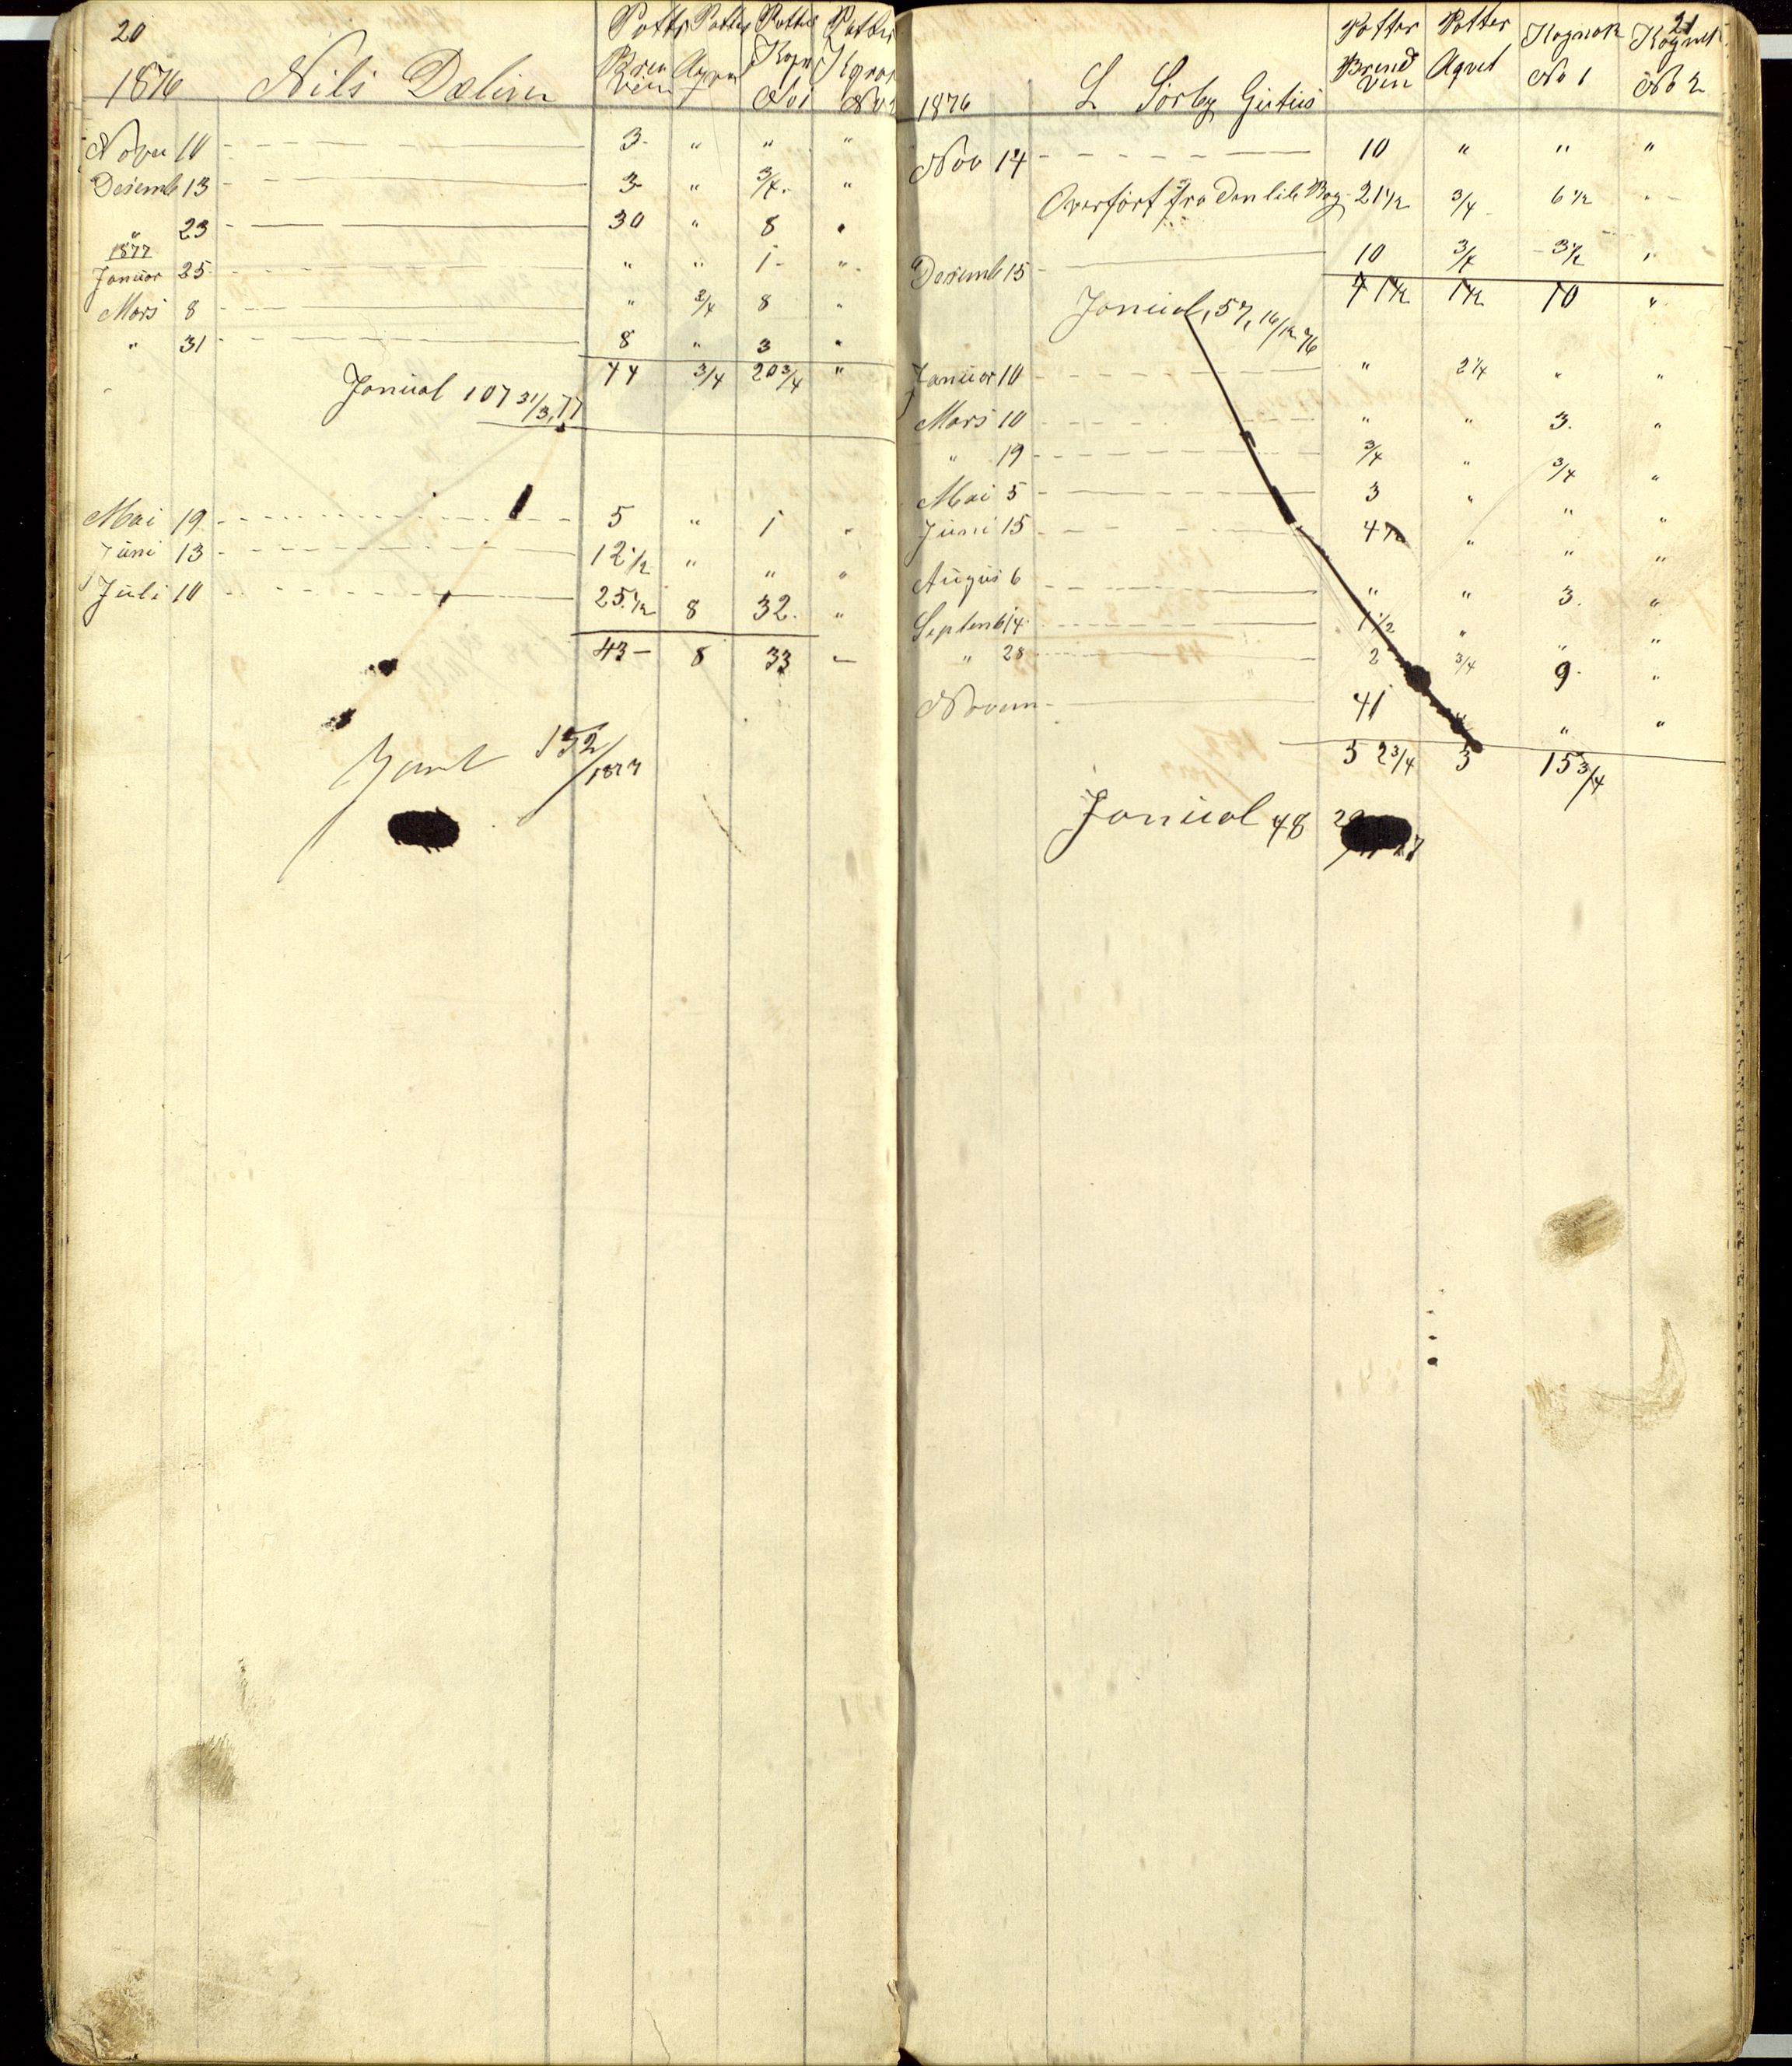 20
Potter Potter Potter Potter
1876 Nils Dæliven Bren Vein Aqvvet Kogn No 1 Kognak No 2
Novm 10 3 " " "
Desemb 13 3 " 3/4 "
" 23 30 " 8 "
1877
Januar 25 " " 1 "
Mars 8 " 3/4 8 "
" 31 8 " 3 "
44 3/4 20 3/4 "
Jonual 107 31/3, 77
Mai 19 5 " 1 "
Juni 13 12 1/2 " " "
Juli 10 25 1/2 8 32 "
43 – 8 33 –
152/1877
21
Potter Potter Kognak Kognak
1876 L Sørby Brend Vin Aqvet No 1 No 2
Nov 14 10 " " "
Overført fra Den lile Bog 21 1/2 3/4 6 1/2 "
Desemb 15 10 3/4 3 1/2 "
41 1/2 1 1/2 10 "
Jonual, 57, 16/12 76
Januar 10 " 2 1/4 " "
Mars 10 " " 3 "
" 19 3/4 " 3/4 "
Mai 5 3 " " "
Juni 15 4 1/2 " " "
August 6 " " 3 "
Septemb 14 1 1/2 " " "
" 28 2 3/4 9 "
Novem 41 " " "
52 3/4 3 15 3/4
Jonual 48